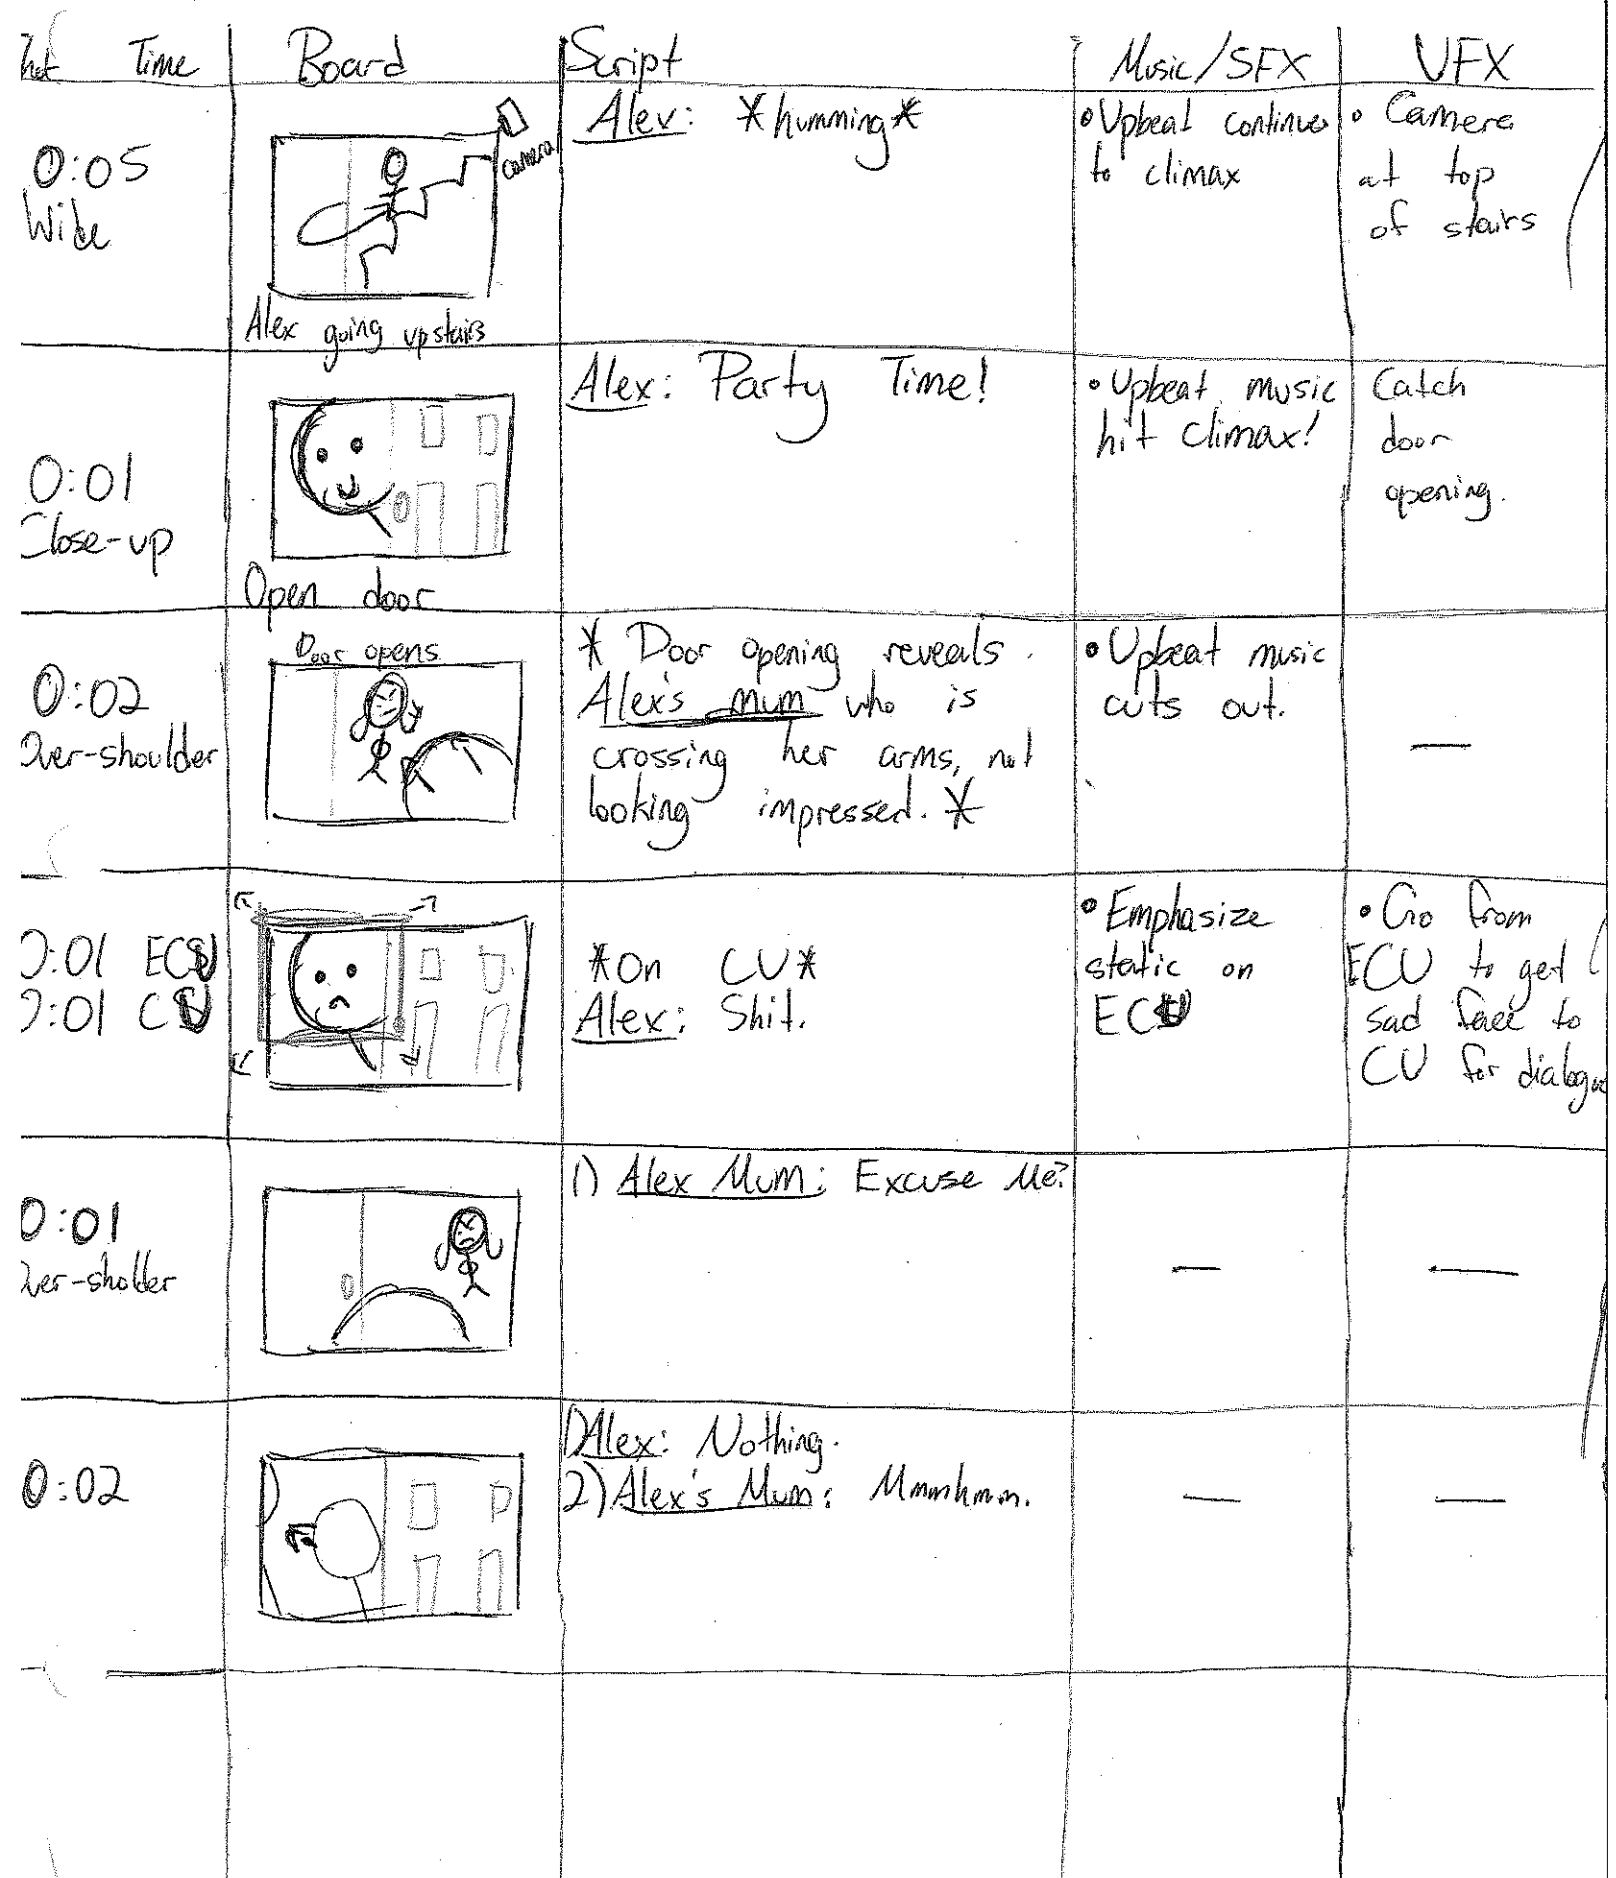 Time Board Script Music/SFX VFX
0:05
Wide
camera
Alex going upstairs
Alex: *humming*
• Upbeat continues
to climax
• Camera
at top
of stairs
0:01
Close-up
Open door
Alex: Party Time!
• Upbeat music
hit climax!
Catch
door
opening.
0:02
Over-shoulder
Door opens
* Door opening reveals
Alex's mum who is
crossing her arms, not
looking impressed. *
• Upbeat music
cuts out.
—
0:01 ECU
0:01 CU
*On CU*
Alex: Shit.
• Emphasize
static on
ECU
• Go from
ECU to get
sad face to
CU for dialogue
0:01
Over-sholder
1) Alex Mum: Excuse Me?
—
—
0:02
1) Alex: Nothing.
2) Alex's Mum: Mmmhmm.
—
—